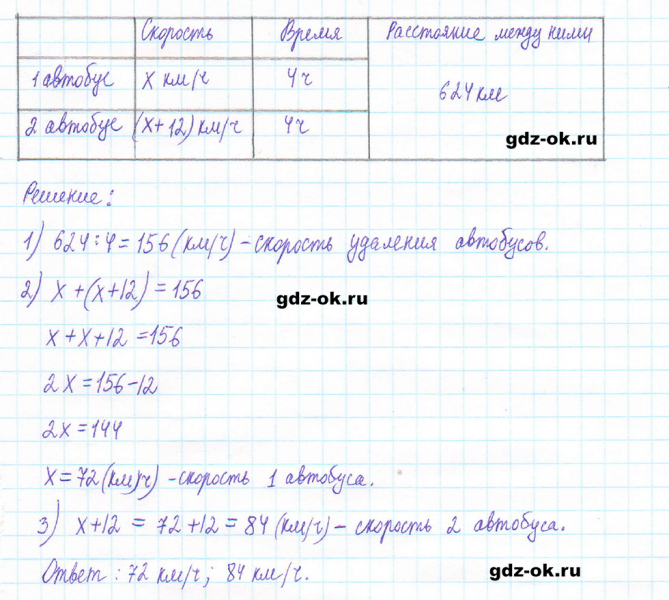 Скорость Время Расстояние между ними
1 автобус x км/ч 4ч 624 км
2 автобус (x+12) км/ч 4ч
gdz-ok.ru
Решение:
1) 624:4=156 (км/ч) - скорость удаления автобусов.
2) x+(x+12)=156
gdz-ok.ru
x+x+12=156
2x=156-12
2x=144
x=72 (км/ч) - скорость 1 автобуса.
3) x+12 = 72+12 = 84 (км/ч) - скорость 2 автобуса.
Ответ: 72 км/ч; 84 км/ч.
gdz-ok.ru